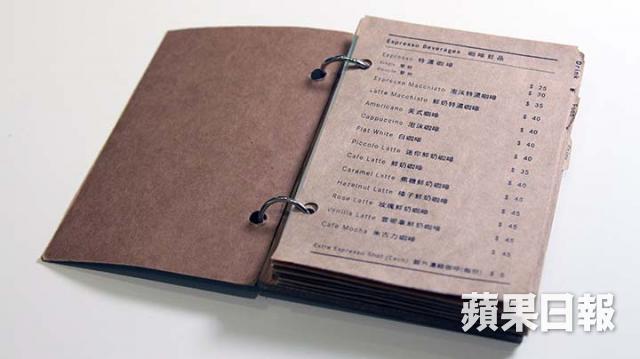 Espresso Beverages 咖啡飲品
Espresso 特濃咖啡
Single 單份 $ 25
Double 雙份 $ 30
Espresso Macchiato 泡沫特濃咖啡 $ 35
Latte Macchiato 鮮奶特濃咖啡 $ 40
Americano 美式咖啡 $ 40
Cappuccino 泡沫咖啡 $ 40
Flat White 白咖啡 $ 40
Piccolo Latte 迷你鮮奶咖啡 $ 35
Cafe Latte 鮮奶咖啡 $ 40
Caramel Latte 焦糖鮮奶咖啡 $ 45
Hazelnut Latte 榛子鮮奶咖啡 $ 45
Rose Latte 玫瑰鮮奶咖啡 $ 45
Vanilla Latte 雲呢拿鮮奶咖啡 $ 45
Cafe Mocha 朱古力咖啡 $ 45
Extra Espresso Shot (Each) 額外濃縮咖啡(每份) $ 5
Drink
蘋果日報